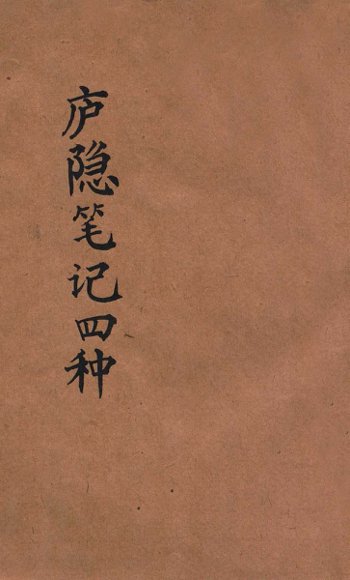 庐隐笔记四种